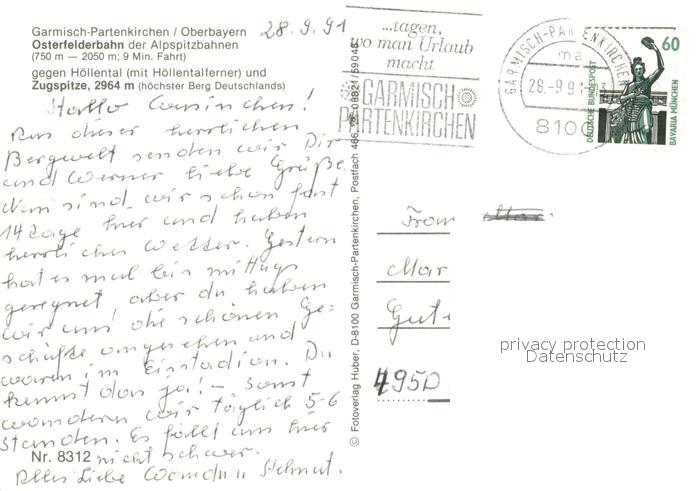 Garmisch-Partenkirchen / Oberbayern
Osterfelderbahn der Alpspitzbahnen
(750 m — 2050 m; 9 Min. Fahrt)
gegen Höllental (mit Höllentalferner) und
Zugspitze, 2964 m (höchster Berg Deutschlands)
28.9.91
Hallo Cousinchen!
Aus dieser herrlichen
Bergwelt senden wir Dir
und Werner liebe Grüße.
Nun sind wir schon fast
14 Tage hier und haben
herrliches Wetter. Gestern
hat es mal bis mittags
geregnet aber da haben
wir uns die schönen Ge-
schäfte angesehen und
waren im Eisstadion. Du
kennst das ja! – Sonst
wandern wir täglich 5-6
Stunden. Es fällt uns hier
nicht schwer.
Nr. 8312
Alles Liebe u Helmut.
© Fotoverlag Huber, D-8100 Garmisch-Partenkirchen, Postfach 466, ☎ 08821/59046
...tagen,
wo man Urlaub
macht
GARMISCH
PARTENKIRCHEN
GARMISCH-PARTENKIRCHEN
ma
28.-9.91
8100
60
DEUTSCHE BUNDESPOST
BAVARIA MÜNCHEN
Frau
Mar
Gut
4950
privacy protection
Datenschutz